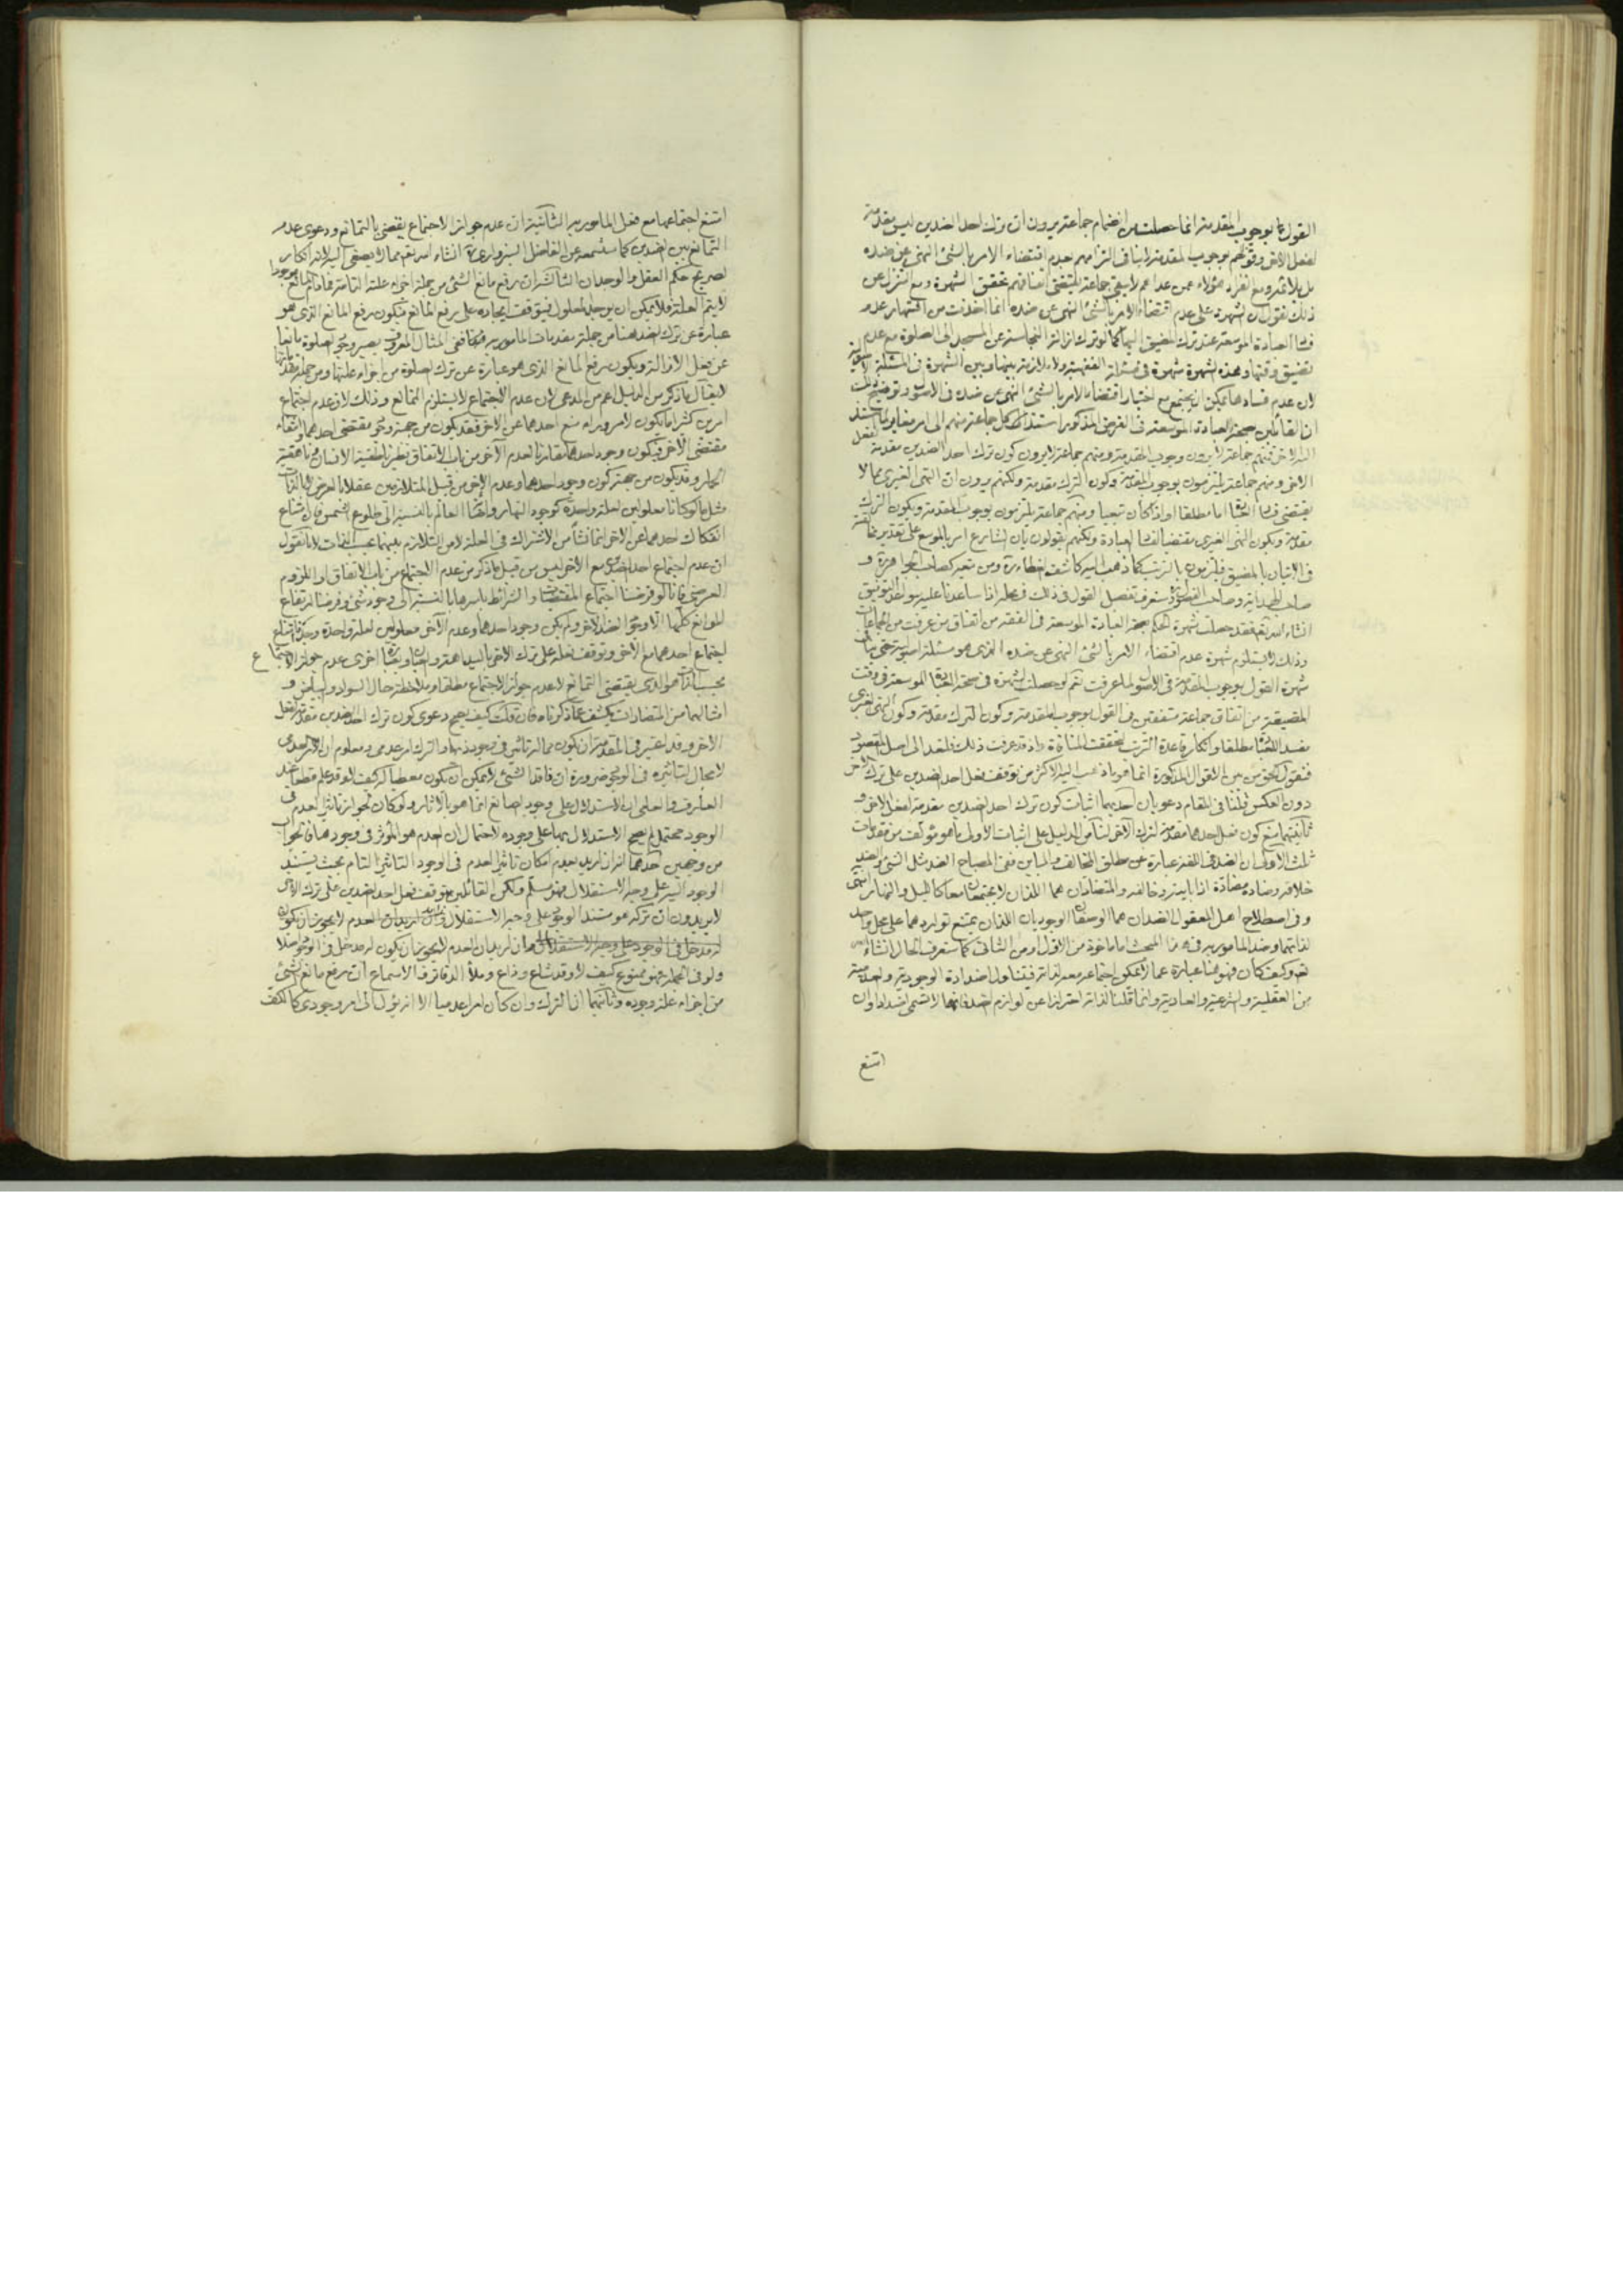 القول بوجوب المقدمة انما حصلت من انضمام جماعة يرون ان ترك احد الضدين ليس مقدمة
لفعل الاخر وقولهم بوجوب المقدمة لا ينافى التزامهم بعدم اقتضاء الامر بالشئ النهى عن ضده
هؤلاء عمن عداهم لا يبقى جماعة تحقق الشهرة ومع التنزل عن
ذلك نقول ان الشهرة على عدم اقتضاء الامر بالشئ النهى عن ضده انما اخذت من اشتهار عدم
فساد العبادة الموسعة عند ترك المضيق كما لو ترك ازالة النجاسة عن المسجد الى الصلوة مع عدم
تضيق وقتها وهذه الشهرة شهرة فى مسئلة الفقهية ولا ملازمة بينها وبين الشهرة فى المسئلة
لان عدم فسادها يمكن ان يجتمع مع اختيار اقتضاء الامر بالشئ النهى عن ضده فى الاصول وتوضيح
ان القائلين بصحة العبادة الموسعة فى الفرض المذكور استند كل جماعة منهم الى امر مغاير لما استند
اليه الاخر فمنهم جماعة لا يرون وجوب المقدمة ومنهم جماعة لا يرون كون ترك احد الضدين مقدمة لفعل
الاخر ومنهم جماعة يلتزمون بوجوب المقدمة وكون الترك مقدمة ولكنهم يرون ان النهى الغيرى مما لا
يقتضى فساد العبادة اما مطلقا او اذا كان تبعيا ومنهم جماعة يلتزمون بوجوب المقدمة وبكون الترك
مقدمة وبكون النهى الغيرى مقتضيا لفساد العبادة ولكنهم يقولون بان الشارع امر بالموسع على تقدير مخالفته
فى الاتيان بالمضيق فيلتزمون بالترتب كما ذهب اليه كاشف الغطاء ره ومن تبعه كصاحب الجواهر ره و
صاحب الهداية وصاحب الفصول وستعرف تفصيل القول فى ذلك فى محله اذا ساعدنا عليه سواطع التوفيق
انشاء الله تع فقد حصلت شهرة الحكم بصحة العبادة الموسعة فى الفقه من اتفاق من عرفت من الجماعات
وذلك لا يستلزم شهرة عدم اقتضاء الامر بالشئ النهى عن ضده الذى هو مسئلة اصولية
شهرة القول بوجوب المقدمة فى الاصول لما عرفت نعم لو حصلت الشهرة فى صحة العبادة الموسعة فى وقت
المضيقة من اتفاق جماعة متفقين فى القول بوجوب المقدمة وكون الترك مقدمة وكون النهى الغيرى
مفسدا للعبادة مطلقا وانكار قاعدة الترتب لتحققت المنافاة واذ قد عرفت ذلك فلنعد الى اصل المقصود
فنقول الحق من بين الاقوال المذكورة انما هو ما ذهب اليه الاكثر من توقف فعل احد الضدين على ترك الاخر
دون العكس فلنا فى المقام دعويان احديهما اثبات كون ترك احد الضدين مقدمة لفعل الاخر و
ثانيتهما منع كون فعل احدهما مقدمة لترك الآخر لنا الدليل على اثبات الاولى ما هو مؤلف من مقدمات
ثلث الاولى ان الضد فى اللغة عبارة عن مطلق المخالف والمباين ففى المصباح الضد مثل الشئ والضد
خلافه وضاده مضادة اذا باينه وخالفه والمتضادان هما اللذان لا يجتمعان معا كالليل والنهار انتهى
وفى اصطلاح اهل المعقول الضدان هما الوصفان الوجوديان اللذان يمتنع تواردهما على محل واحد
لذاتهما وضد المامور به فى هذا المبحث اما ماخوذ من الاول او من الثانى كما ستعرف الحال انشاء الله
تع وكيف كان فهو هنا عبارة عما لا يمكن اجتماعه معه لذاته فيتناول اضداده الوجودية والعدمية
من العقلية والشرعية والعادية وانما قلنا لذاته احترازا عن لوازم الضد فانها لا تسمى اضدادا وان
امتنع
امتنع اجتماعها مع فعل المامور به الثانية ان عدم جواز الاجتماع يقضى بالتمانع ودعوى عدم
التمانع بين الضدين كما ستسمعه عن الفاضل السبزوارى انشاء الله تع مما لا يصغى اليه لانه انكار
لصريح حكم العقل والوجدان الثالثة ان رفع مانع الشئ من جملة اجزاء علته التامة فما دام المانع موجودا
لا يتم العلة فلا يمكن ان يوجد المعلول فيتوقف ايجاده على رفع المانع فيكون رفع المانع الذى هو
عبارة عن ترك الضد هنا من جملة مقدمات المامور به ففى المثال المعروف يصير وجود الصلوة مانعا
عن فعل الازالة ويكون رفع المانع الذى هو عبارة عن ترك الصلوة من اجزاء علتها ومن جملة مقدماتها
لا يقال ما ذكر من الدليل اعم من المدعى لان عدم الاجتماع لا يستلزم التمانع وذلك لان عدم اجتماع
امرين كثيرا ما يكون لامر وراء منع احدهما عن الاخر فقد يكون من جهة وجود مقتضى احدهما وانتفاء
مقتضى الاخر فيكون وجود احدهما مقارنا لعدم الآخر من باب الاتفاق نظير ناطقية الانسان وناهقية
الحمار وقد يكون من جهة كون وجود احدهما وعدم الاخر من قبيل المتلازمين عقلا بالعرض لا بالذات
مثل ما لو كانا معلولين لعلة واحدة كوجود النهار واضاءة العالم بالنسبة الى طلوع الشمس فان امتناع
انفكاك احدهما عن الاخر انما نشأ من الاشتراك فى العلة لا من التلازم بينهما بحسب الذات لانا نقول
ان عدم اجتماع احد الضدين مع الآخر ليس من قبيل ما ذكر من عدم الاجتماع من باب الاتفاق او اللزوم
العرضى فانا لو فرضنا اجتماع المقتضيات والشرائط باسرها بالنسبة الى وجود شئ وفرضنا ارتفاع
الموانع كلها الا وجود الضد الاخر ولم يكن وجود احدهما وعدم الآخر معلولين لعلة واحدة وجدنا امتناع
اجتماع احدهما مع الآخر وتوقف فعله على ترك الاخر بالبداهة وبعبارة اخرى عدم جواز الاجتماع
بحسب الذات هو الذى يقتضى التمانع لا عدم جواز الاجتماع مطلقا وملاحظة حال السواد والبياض و
امثالهما من المتضادات يكشف عما ذكرناه فان قلت كيف يصح دعوى كون ترك احد الضدين مقدمة لفعل
الاخر وقد اعتبر فى المقدمة ان يكون مما له تأثير فى وجود ذيها والترك امر عدمى ومعلوم ان الامر العدمى
لا مجال لتأثيره فى الوجود ضرورة ان فاقد الشئ لا يمكن ان يكون معطيا له كيف لا وقد علم قطعا عند
العارف والعامى ان الاستدلال على وجود الصانع انما هو بالآثار ولو كان تجويز تأثير العدم فى
الوجود محتمل لم يصح الاستدلال بها على وجوده لاحتمال ان العدم هو المؤثر فى وجودها قلت الجواب
من وجهين احدهما انه ان اريد بعدم امكان تأثير العدم فى الوجود التأثير التام بحيث يستند
الوجود اليه على وجه الاستقلال فهو مسلم ولكن القائلين بتوقف فعل احد الضدين على ترك الاخر
لا يريدون ان تركه هو مستند الوجود على وجه الاستقلال وان اريد ان العدم لا يجوز ان يكون
له مدخل فى الوجود على وجه الاستقلال وان اريد ان العدم لا يجوز ان يكون له مدخل فى الوجود اصلا
ولو فى الجملة فهو ممنوع كيف لا وقد شاع وذاع وملأ الدفاتر والاسماع ان رفع مانع الشئ
من اجزاء علة وجوده وثانيهما ان الترك وان كان امرا عدميا الا انه يؤل الى امر وجودى كالكف